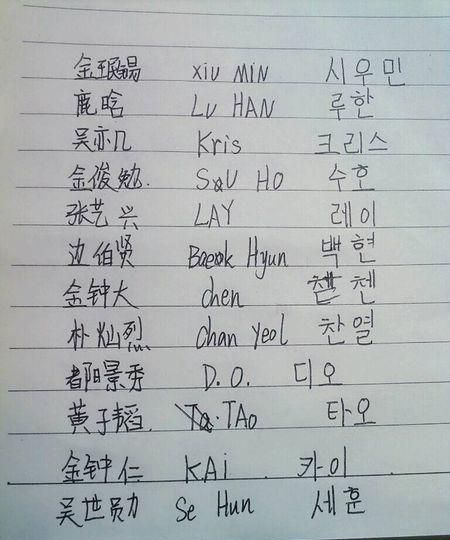 金珉锡 XiU MiN 시우민
鹿晗 LU HAN 루한
吴亦凡 Kris 크리스
金俊勉. SU HO 수호
张艺兴 LAY 레이
边伯贤 Baeok Hyun 백현
金钟大 chen 첸
朴灿烈 chan Yeol 찬열
都暻秀 D.O. 디오
黄子韬. TAO 타오
金钟仁 KAi 카이
吴世勋 Se Hun 세훈